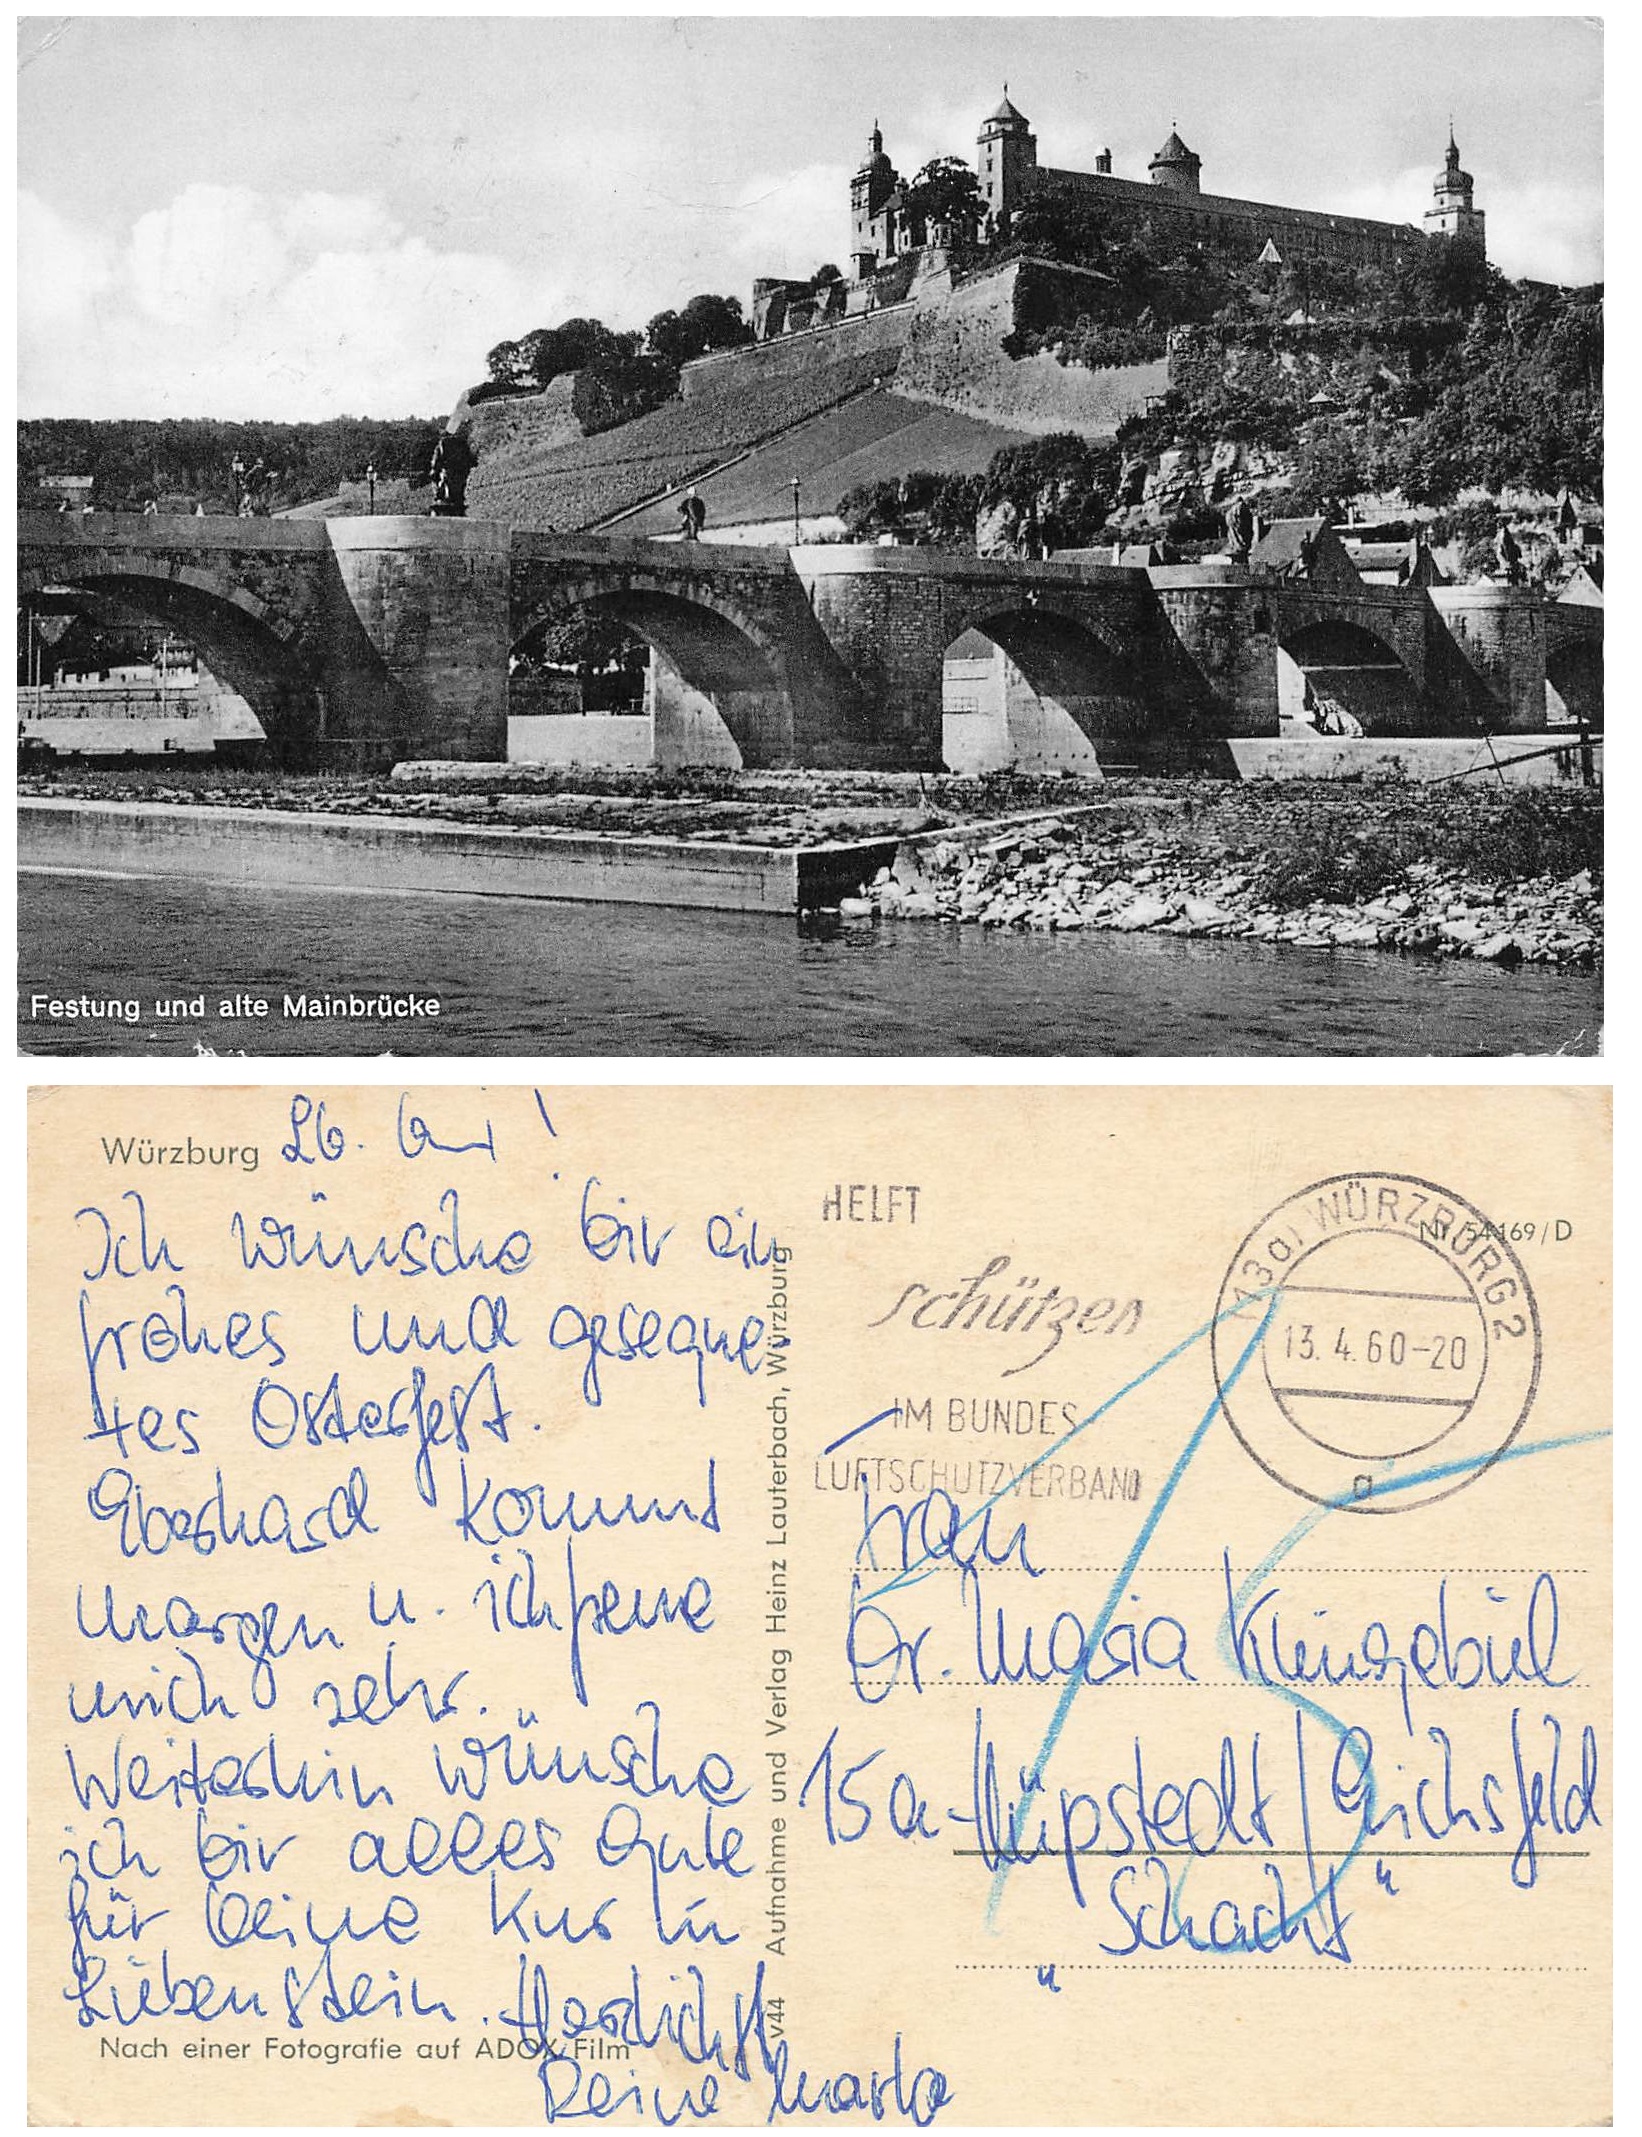 Festung und alte Mainbrücke
Würzburg
Lb.
Ich wünsche Dir ein
frohes und gesegne-
tes Osterfest.
Eberhard kommt
morgen u. ich freue
mich sehr.
Weiterhin wünsche
ich Dir alles Gute
für Deine Kur in
Liebenstein. Herzlichst
Deine Marta
Nach einer Fotografie auf ADOX-Film
v44 Aufnahme und Verlag Heinz Lauterbach, Würzburg
HELFT
schützen
IM BUNDES
LUFTSCHUTZVERBAND
(13a) WÜRZBURG 2
13.4.60-20
a
Nr. 54169/D
Frau
Dr. Maria Klingebiel
15a-Hüpstedt/Eichsfeld
"Schacht"